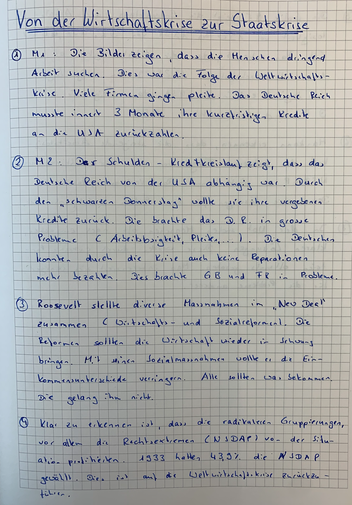 Von der Wirtschaftskrise zur Staatskrise
① M1: Die Bilder zeigen, dass die Menschen dringend
Arbeit suchen. Dies war die Folge der Weltwirtschafts-
krise. Viele Firmen gingen pleite. Das Deutsche Reich
musste innert 3 Monate ihre kurzfristigen Kredite
an die USA zurückzahlen.
② M2: Der Schulden-Kreditkreislauf zeigt, dass das
Deutsche Reich von der USA abhängig war. Durch
den „schwarzen Donnerstag" wollte sie ihre vergebenen
Kredite zurück. Die brachte das D.R. in grosse
Probleme (Arbeitslosigkeit, Pleite,...). Die Deutschen
konnten durch die Krise auch keine Reparationen
mehr bezahlen. Dies brachte GB und FR in Probleme.
③ Roosevelt stellte diverse Massnahmen im „New Deal"
zusammen (Wirtschafts- und Sozialreformen). Die
Reformen sollten die Wirtschaft wieder in Schwung
bringen. Mit seinen Sozialmassnahmen wollte er die Ein-
kommensunterschiede verringern. Alle sollten was bekommen.
Die gelang ihm nicht.
④ Klar zu erkennen ist, dass die radikaleren Gruppierungen,
vor allem die Rechtsextremen (NSDAP) von der Situ-
ation profitierten. 1933 hatten 43,9% die NSDAP
gewählt. Dies ist auf die Weltwirtschaftskrise zurückzu-
führen.